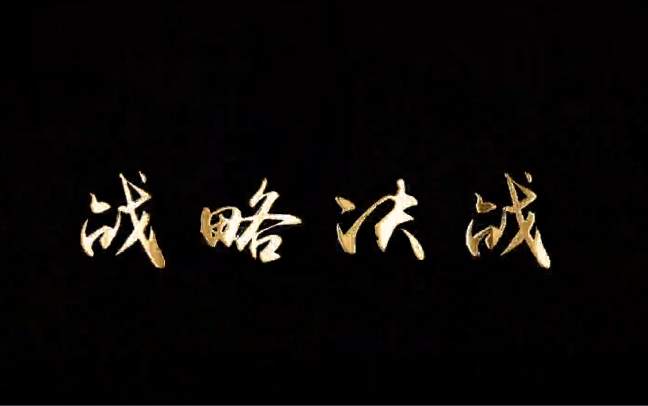 战略决战